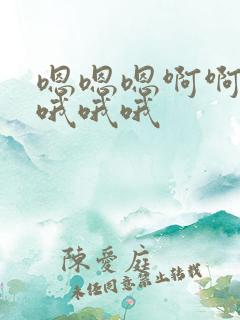 嗯嗯嗯啊啊
哦哦哦
陳愛庭
未任同意禁止转载